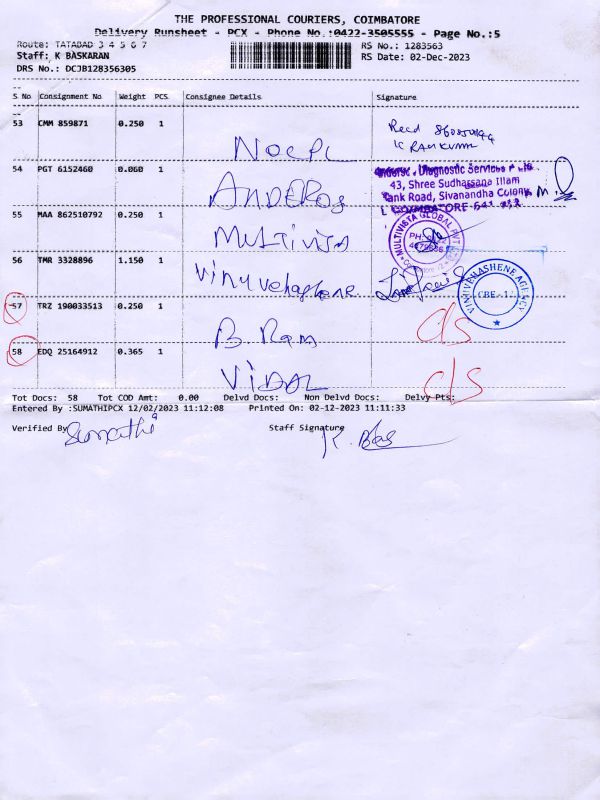 THE PROFESSIONAL COURIERS, COIMBATORE
Delivery Runsheet - PCX - Phone No.:0422-3505555 - Page No.:5
Route: TATABAD 3 4 5 6 7 RS No.: 1283563
Staff: K BASKARAN RS Date: 02-Dec-2023
DRS No.: DCJB128356305
S No Consignment No Weight PCS Consignee Details Signature
53 CMM 859871 0.250 1 NOCPL Recd
54 PGT 6152460 0.060 1 ANDEROS Diagnostic Services
43, Shree Sudharsana Illam
Tank Road, Sivanandha Colony
COIMBATORE
55 MAA 862510792 0.250 1 MULTIVISTA MULTIVISTA GLOBAL PVT
56 TMR 3328896 1.150 1 VINUVENASHENE AGENCY
CBE-12
57 TRZ 190033513 0.250 1 B. Ram ds
58 EDQ 25164912 0.365 1 VIDAL ds
Tot Docs: 58 Tot COD Amt: 0.00 Delvd Docs: Non Delvd Docs: Delvy Pts:
Entered By :SUMATHIPCX 12/02/2023 11:12:08 Printed On: 02-12-2023 11:11:33
Verified By Sumathi Staff Signature K. Bas